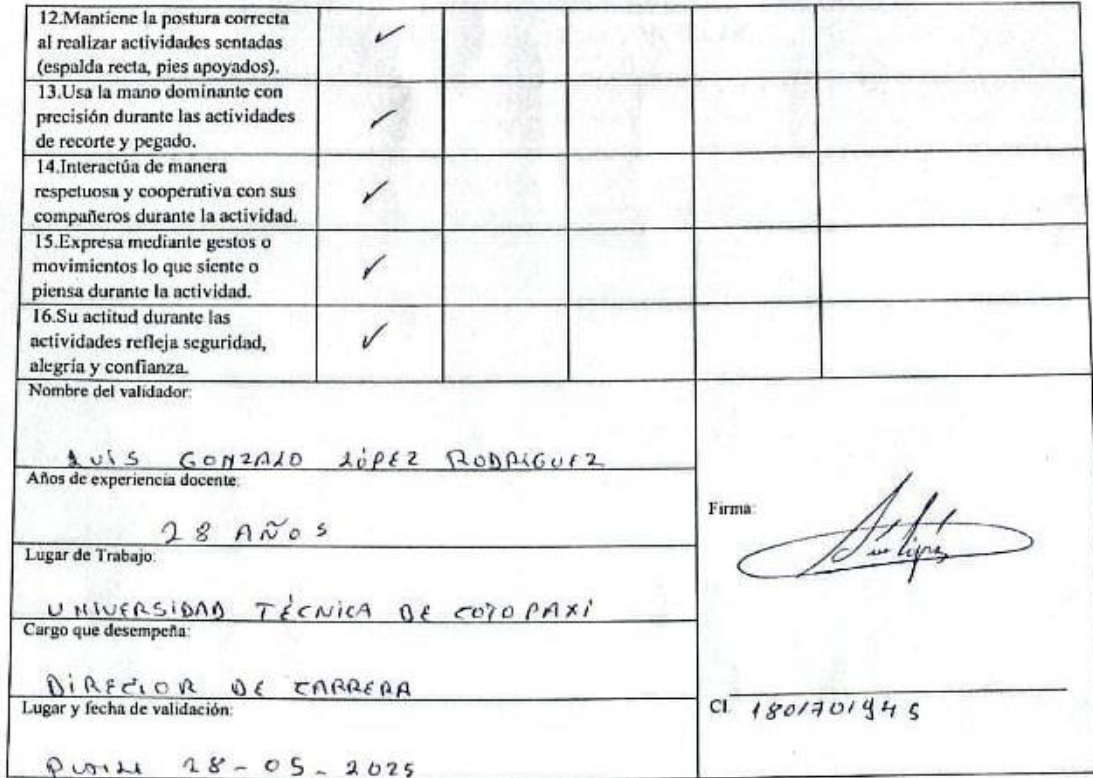 12.Mantiene la postura correcta
al realizar actividades sentadas
(espalda recta, pies apoyados).
✓
13.Usa la mano dominante con
precisión durante las actividades
de recorte y pegado.
✓
14.Interactúa de manera
respetuosa y cooperativa con sus
compañeros durante la actividad.
✓
15.Expresa mediante gestos o
movimientos lo que siente o
piensa durante la actividad.
✓
16.Su actitud durante las
actividades refleja seguridad,
alegría y confianza.
✓
Nombre del validador:
LUÍS GONZALO LÓPEZ RODRIGUEZ
Años de experiencia docente:
28 AÑOS
Lugar de Trabajo:
UNIVERSIDAD TÉCNICA DE COTOPAXI
Cargo que desempeña:
DIRECTOR DE CARRERA
Lugar y fecha de validación:
28-05-2025
Firma:
CI. 1801701945